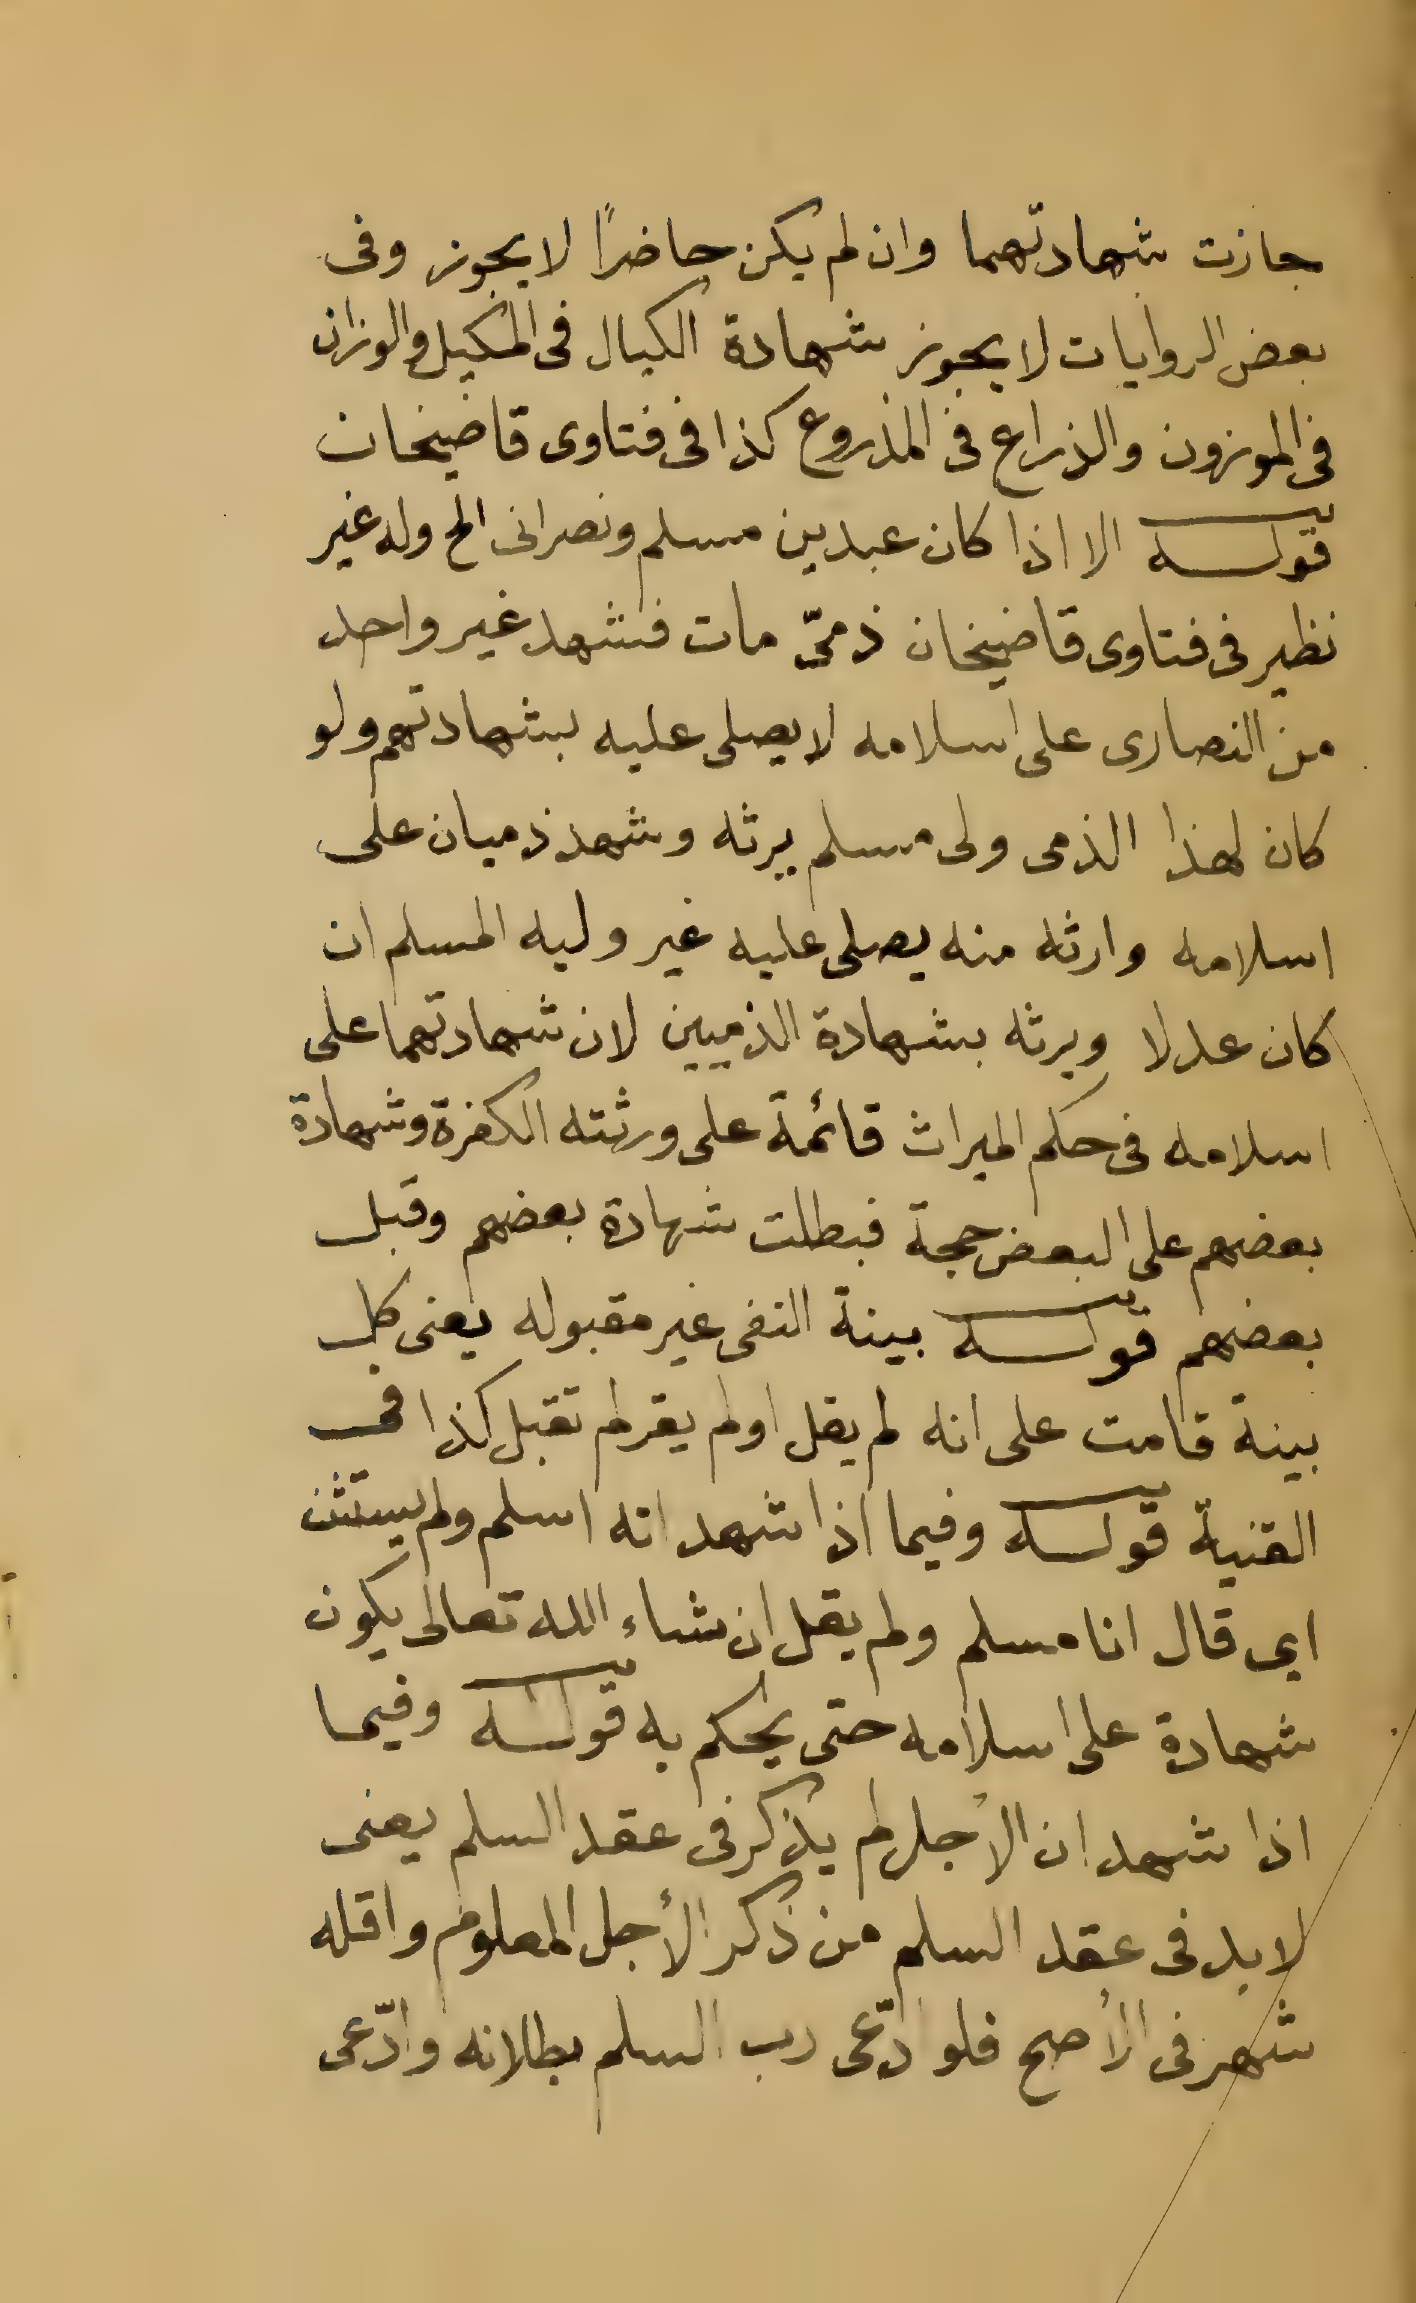 جازت شهادتهما وان لم يكن حاضرًا لا يجوز وفى
بعض الروايات لا يجوز شهادة الكيال فى المكيل والوزان
فى الموزون والذراع فى المذروع كذا فى فتاوى قاضيخان
قوله الا اذا كان عبد بين مسلم ونصرانى الخ وله غير
نظير فى فتاوى قاضيخان ذمىّ مات فشهد غير واحد
من النصارى على اسلامه لا يصلى عليه بشهادتهم ولو
كان لهذا الذمى ولى مسلم يرثه وشهد ذميان على
اسلامه وارثه منه يصلى عليه غير وليه المسلم ان
كان عدلا ويرثه بشهادة الذميين لان شهادتهما على
اسلامه فى حكم الميراث قائمة على ورثته الكفرة وشهادة
بعضهم على البعض حجة فبطلت شهادة بعضهم وقبل
بعضهم قوله بينة النفى غير مقبوله يعنى كل
بينة قامت على انه لم يقل او لم يقر لم تقبل كذا فى
القنية قوله وفيما اذا شهد انه اسلم ولم يستثن
اى قال انا مسلم ولم يقل ان شاء الله تعالى يكون
شهادة على اسلامه حتى يحكم به قوله وفيما
اذا شهد ان الأجل لم يذكر فى عقد السلم يعنى
لا بد فى عقد السلم من ذكر الأجل المعلوم واقله
شهر فى الأصح فلو ادّعى رب السلم بطلانه وادّعى